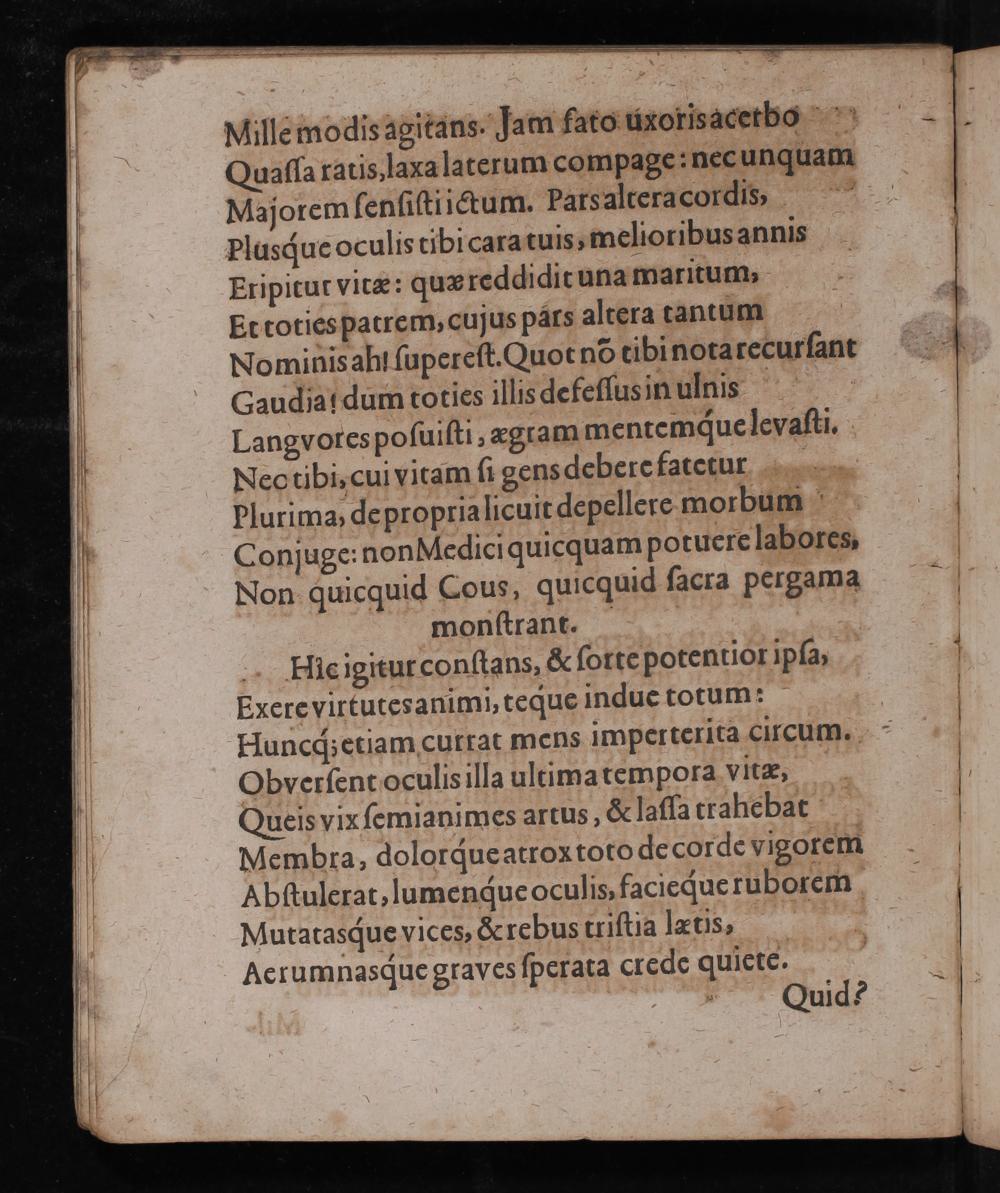 Mille modis agitans. Jam fato uxoris acerbo
Quaſſa ratis, laxa laterum compage: nec unquam
Majorem ſenſiſti ictum. Pars altera cordis,
Plusq́ue oculis tibi cara tuis, melioribus annis
Eripitur vitæ: quæ reddidit una maritum,
Et toties patrem, cujus párs altera tantum
Nominis ah! ſupereſt. Quot nõ tibi nota recurſant
Gaudia! dum toties illis defeſſus in ulnis
Langvores poſuiſti, ægram mentemq́ue levaſti.
Nec tibi, cui vitam ſi gens debere fatetur
Plurima, de propria licuit depellere morbum
Conjuge: non Medici quicquam potuere labores,
Non quicquid Cous, quicquid ſacra pergama
monſtrant.
Hîc igitur conſtans, & ſorte potentior ipſa,
Exere virtutes animi, teq́ue indue totum:
Huncq́; etiam currat mens imperterita circum.
Obverſent oculis illa ultima tempora vitæ,
Queis vix ſemianimes artus, & laſſa trahebat
Membra, dolorq́ue atrox toto de corde vigorem
Abſtulerat, lumenq́ue oculis, facieq́ue ruborem
Mutatasq́ue vices, & rebus triſtia lætis,
Aerumnasq́ue graves ſperata crede quiete.
Quid?